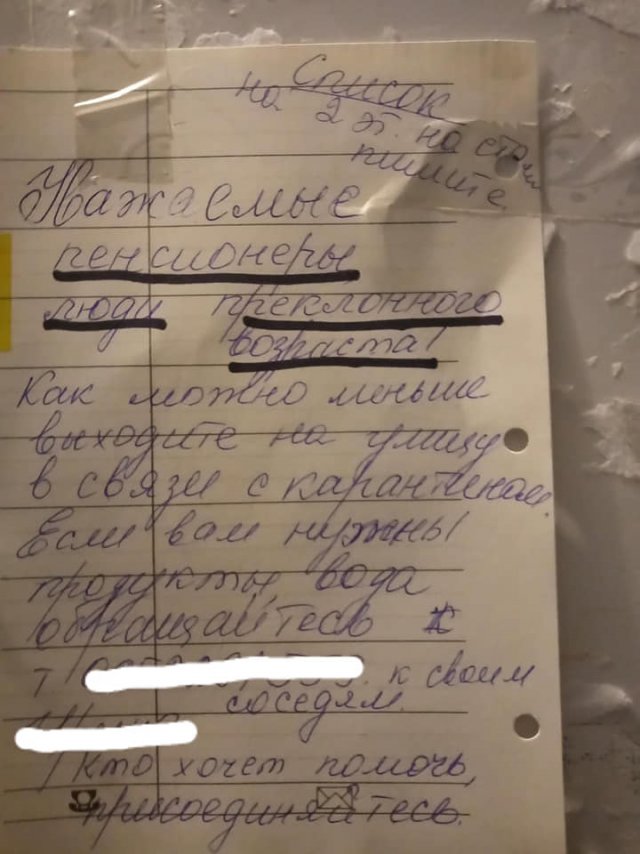 Список
на 2 эт. на сто
пишите
Уважаемые
пенсионеры
люди преклонного
возраста!
Как можно меньше
выходите на улицу
в связи с карантином.
Если вам нужны
продукты, вода
обращайтесь к
т к своим
соседям.
Кто хочет помочь,
присоединяйтесь.